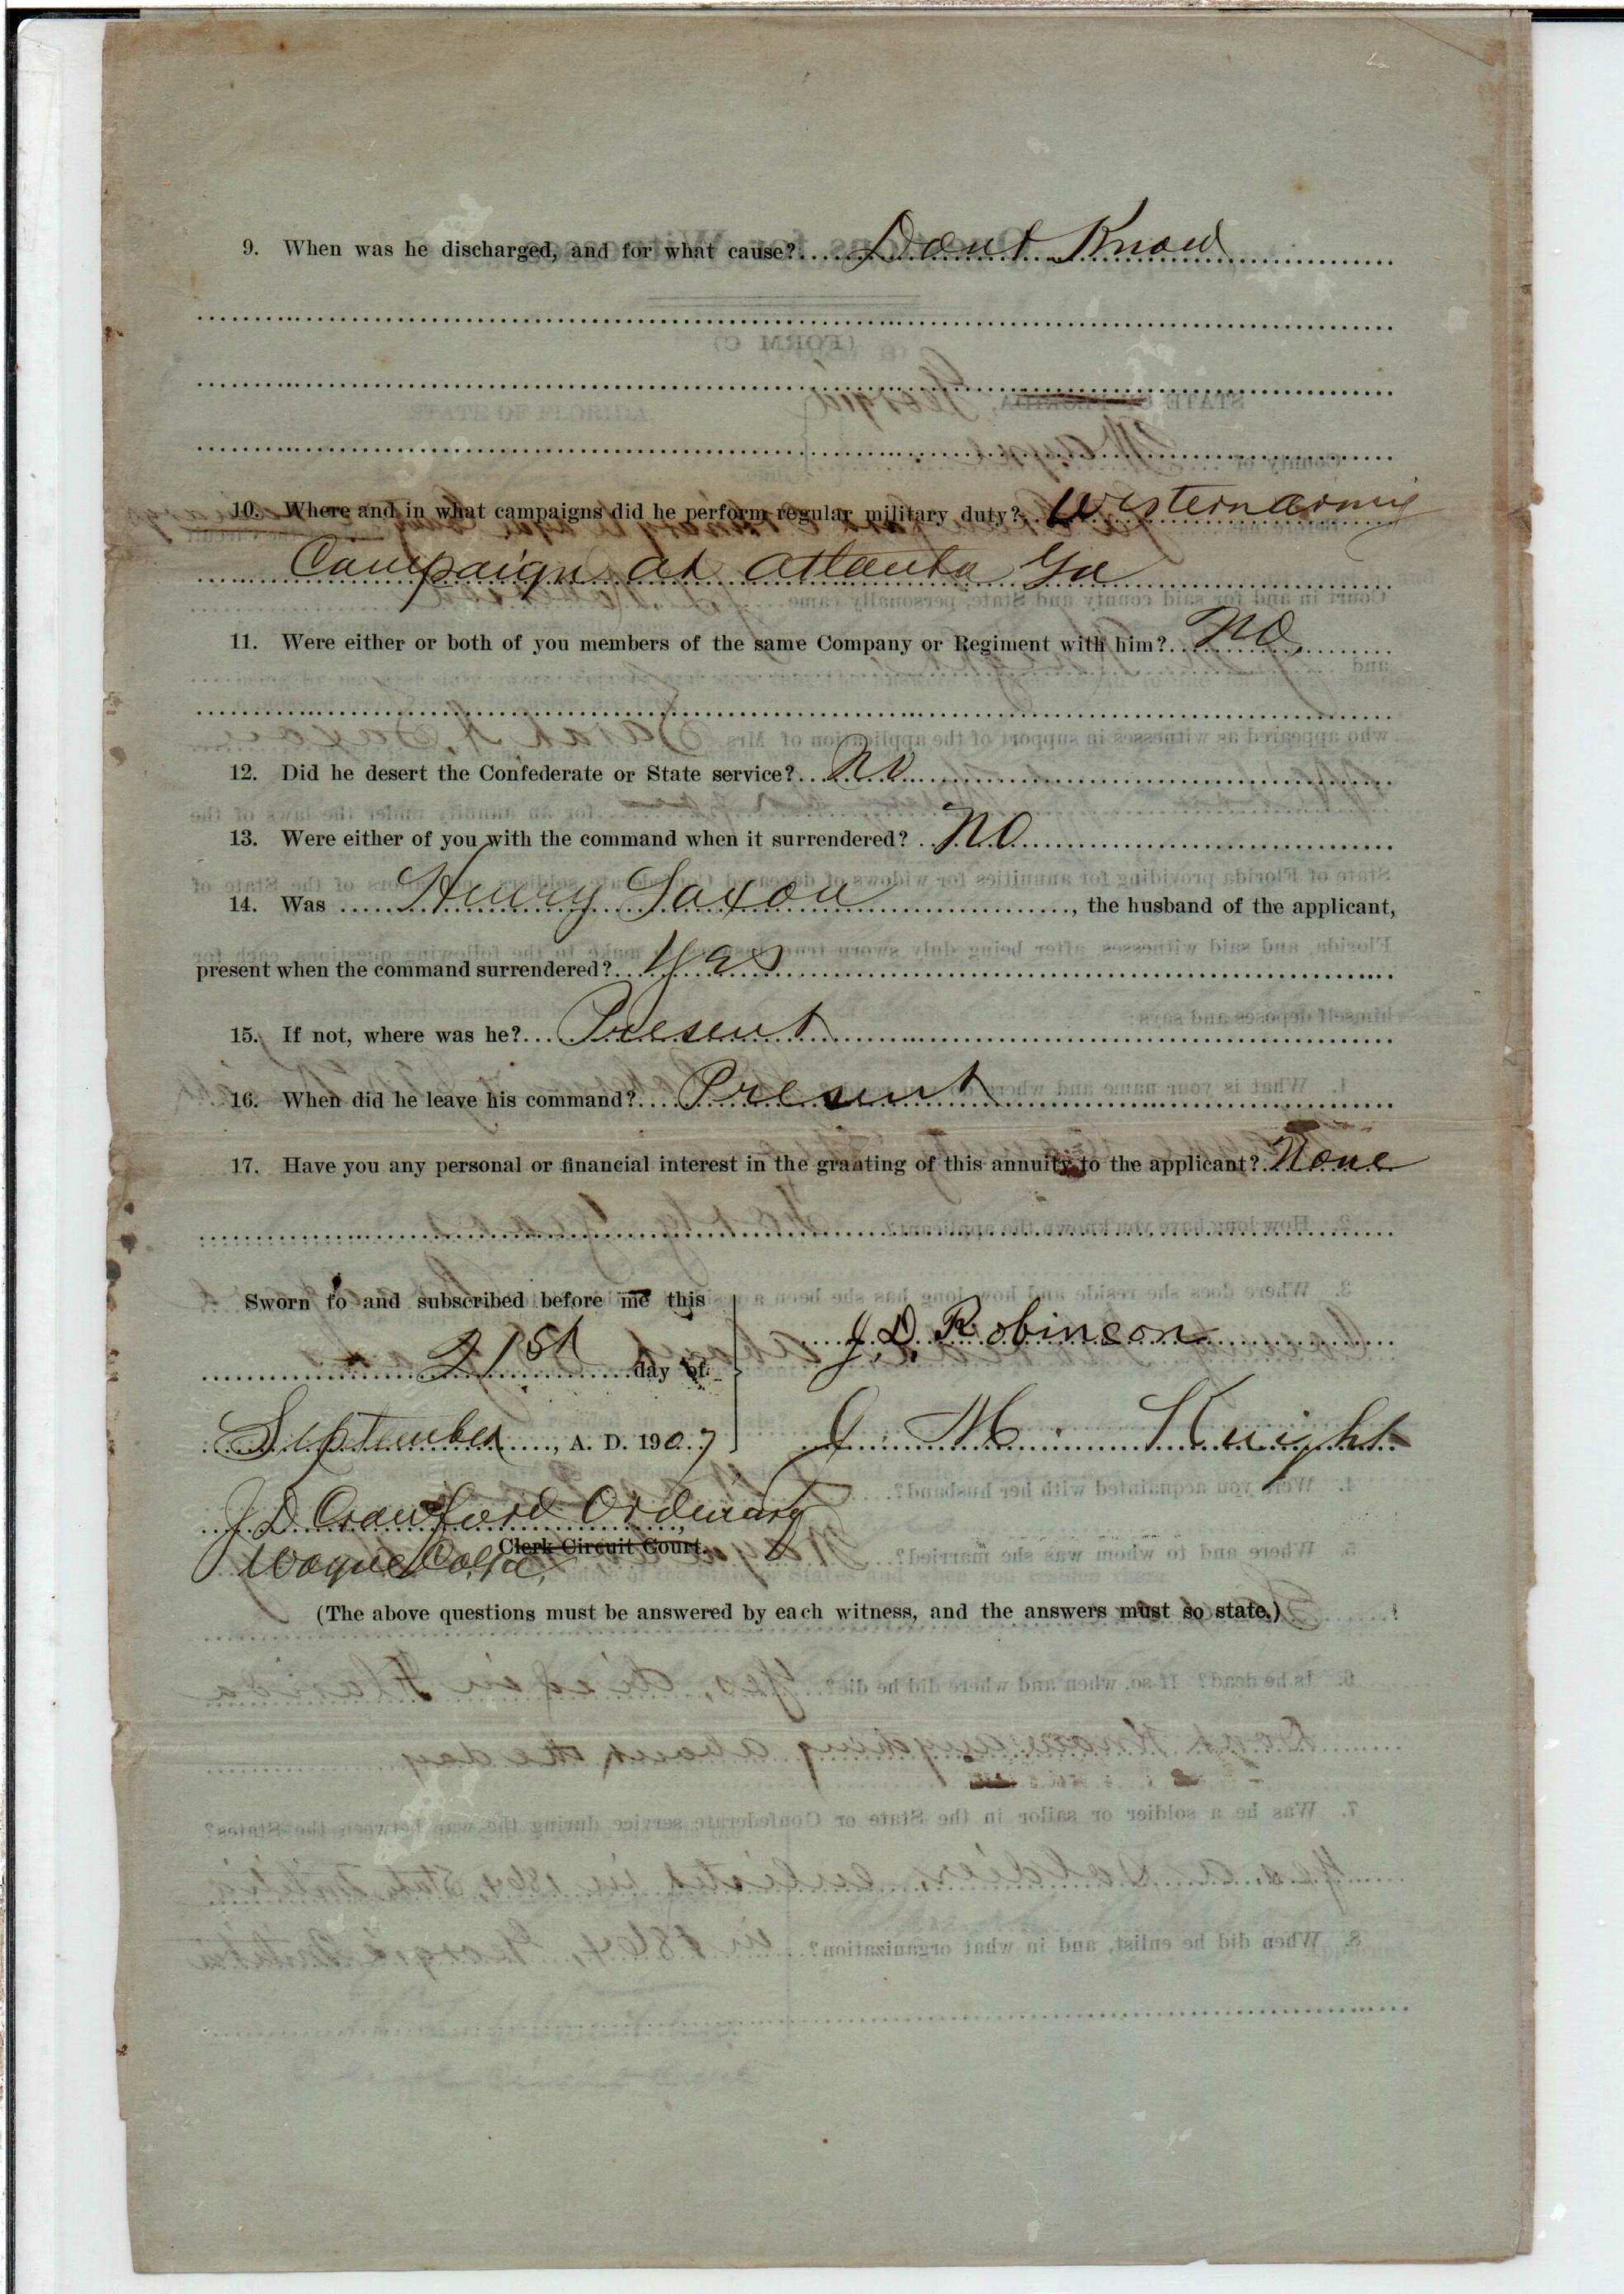 9. When was he discharged, and for what cause? Dont Know
10. Where and in what campaigns did he perform regular military duty? Western army
Campaign at Atlanta Ga
11. Were either or both of you members of the same Company or Regiment with him? No
12. Did he desert the Confederate or State service? No
13. Were either of you with the command when it surrendered? No
14. Was Henry Saxon, the husband of the applicant,
present when the command surrendered? Yes
15. If not, where was he? Present
16. When did he leave his command? Present
17. Have you any personal or financial interest in the granting of this annuity to the applicant? None
Sworn to and subscribed before me this
21st day of
September, A. D. 1907
J. D. Robinson
J. M. Knight
J D Crawford Ordinary
Clerk Circuit Court.
Wayne Co. Ga.
(The above questions must be answered by each witness, and the answers must so state.)